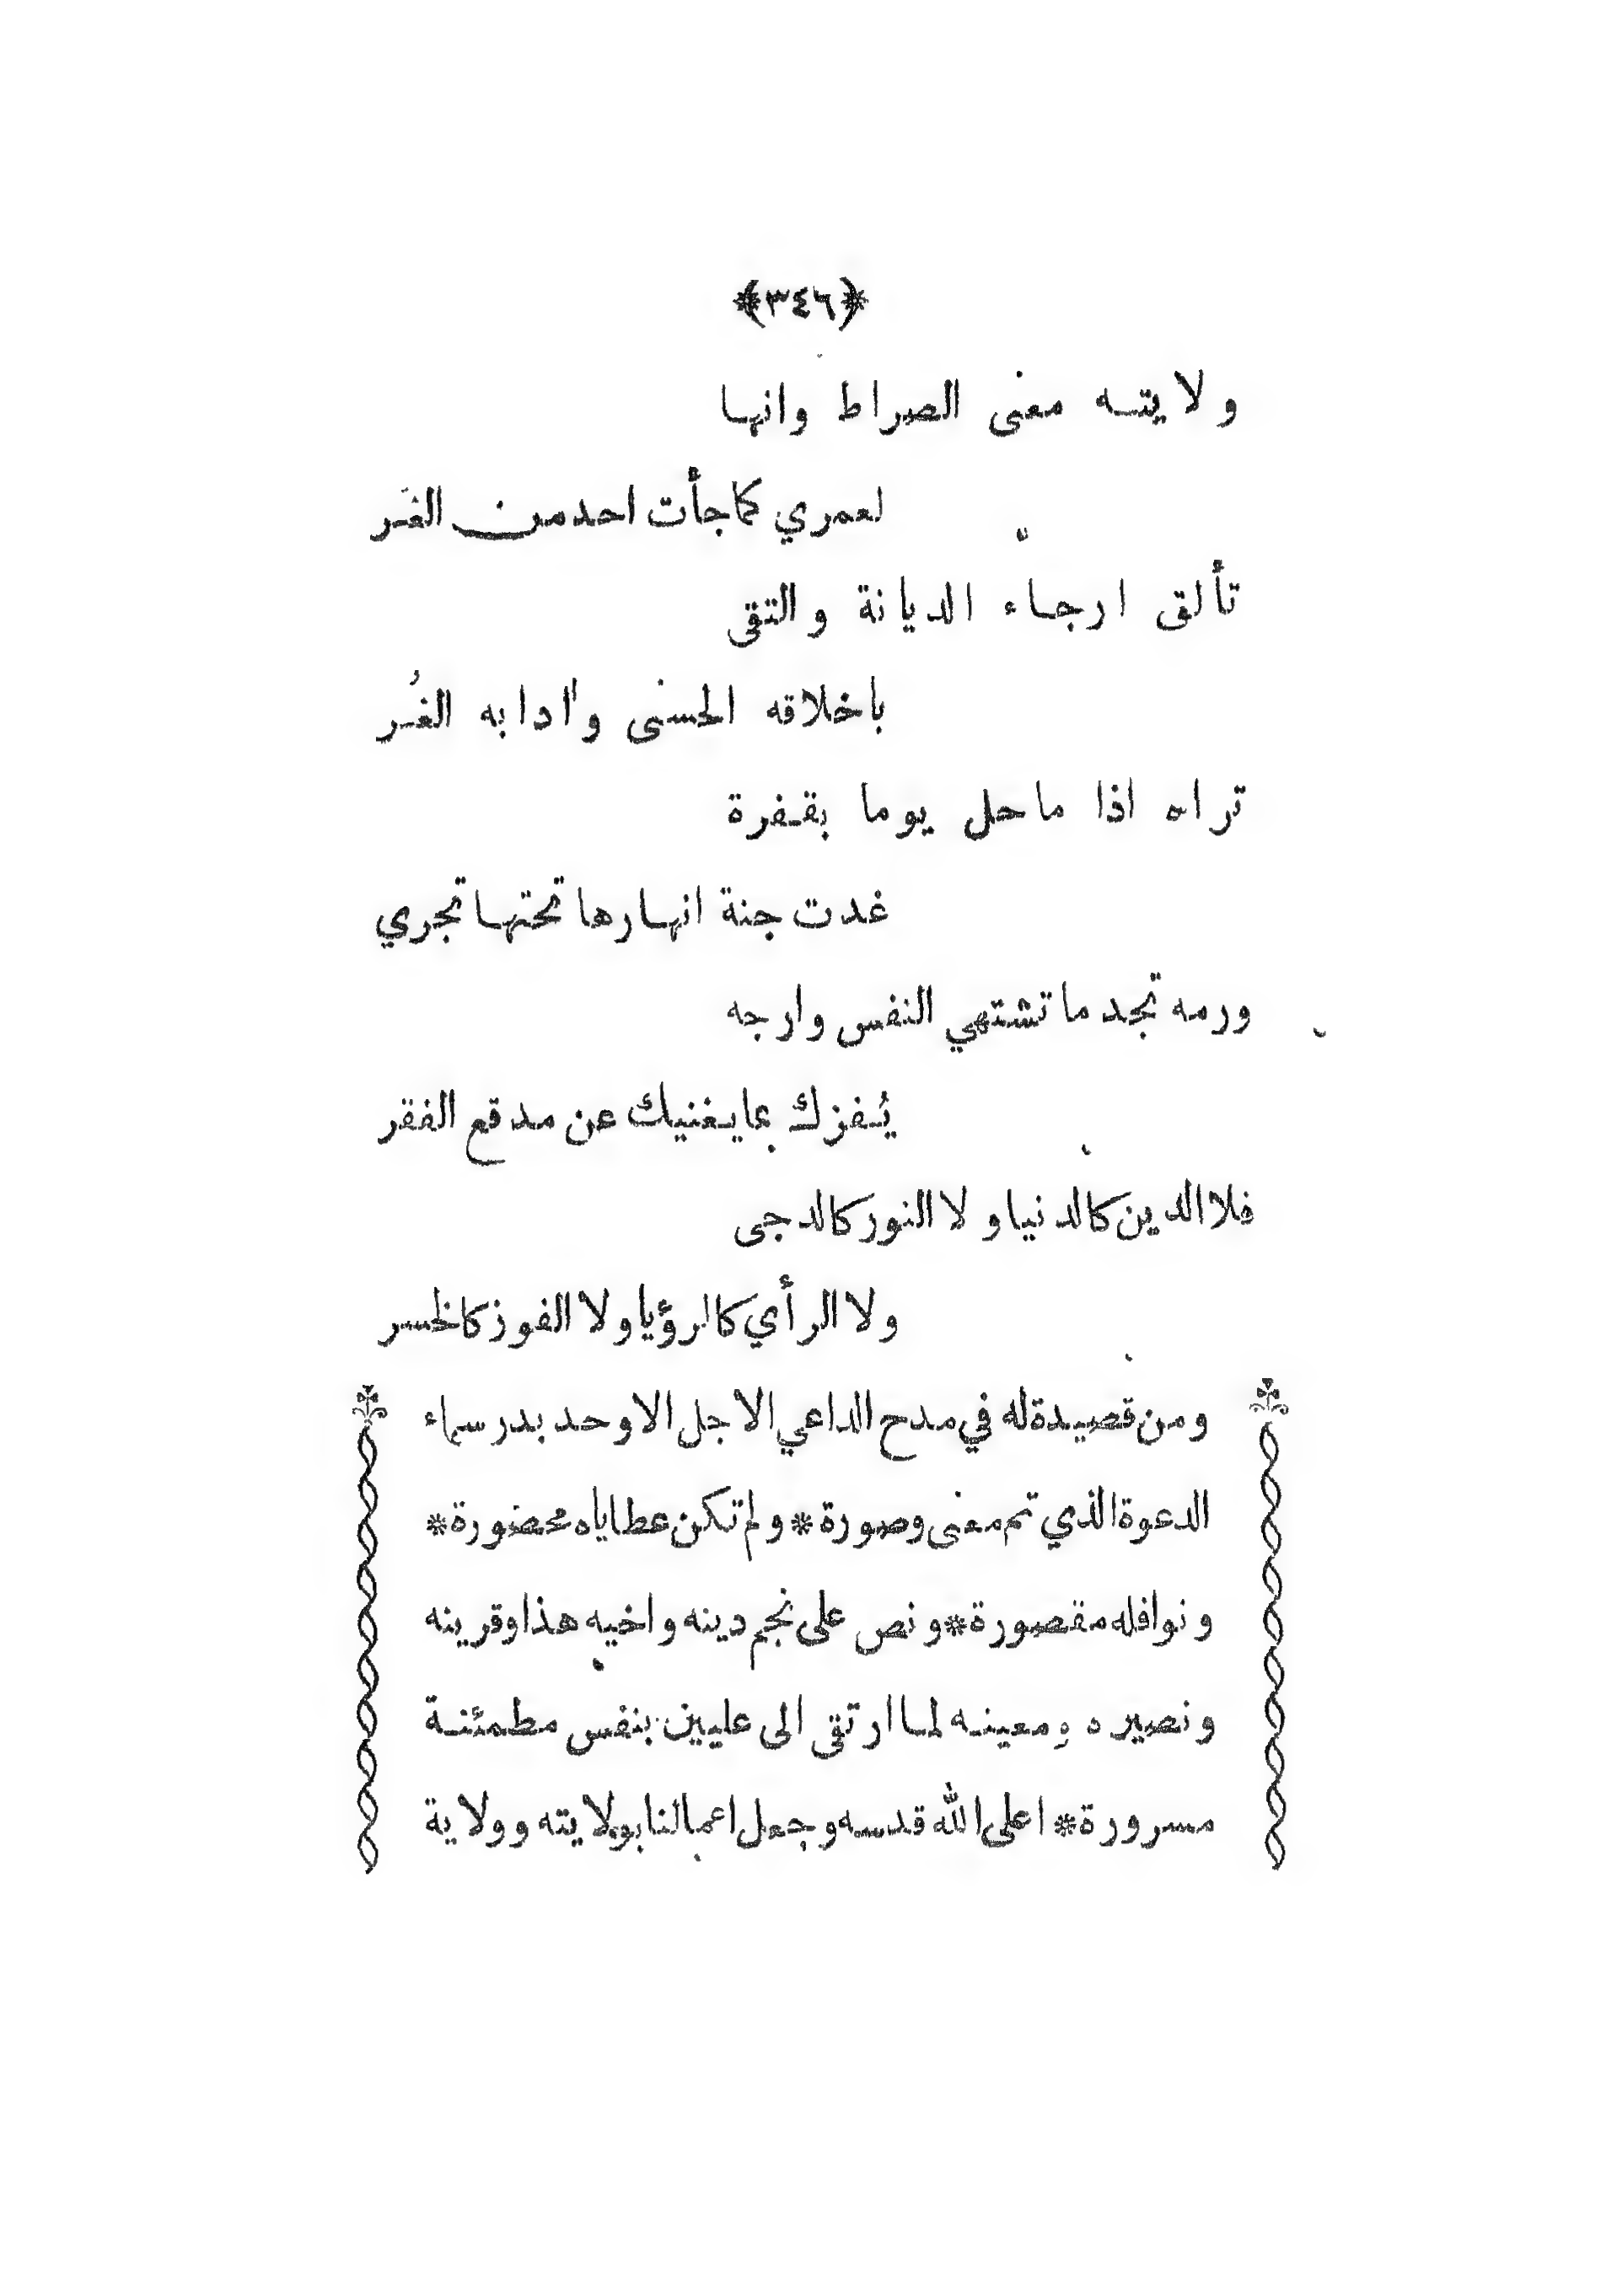 ﴿٣٤٦﴾
ولايتـه معنى الصراط وانهـا
لعمري كماجأت احد من الغَـر
تألق ارجـاء الديانة والتقى
باخلاقه الحسنى واٰدابه الغُـر
تراه اذا ماحل يوما بقـفرة
غدت جنة انهـارها تحتهـا تجري
ورمه تجد ماتشتهي النفس وارجه
يُـفزك بمايـغنيك عن مدقع الفقر
فلا الدين كالدنيا ولا النور كالدجى
ولا الرأي كالرؤيا ولا الفوز كالخسر
ومن قصيدة له في مدح الداعي الاجل الاوحد بدر سماء
الدعوة الذي تم معنى وصورة * ولم تكن عطاياه محضورة *
ونوافله مقصورة * ونص على نجم دينه واخيه هذا وقرينه
ونصيره ومعينـه لمـا ارتقى الى عليين بنفس مطمئنـة
مسرورة * اعلى الله قدسه وجعل اعمالنا بولايته وولاية